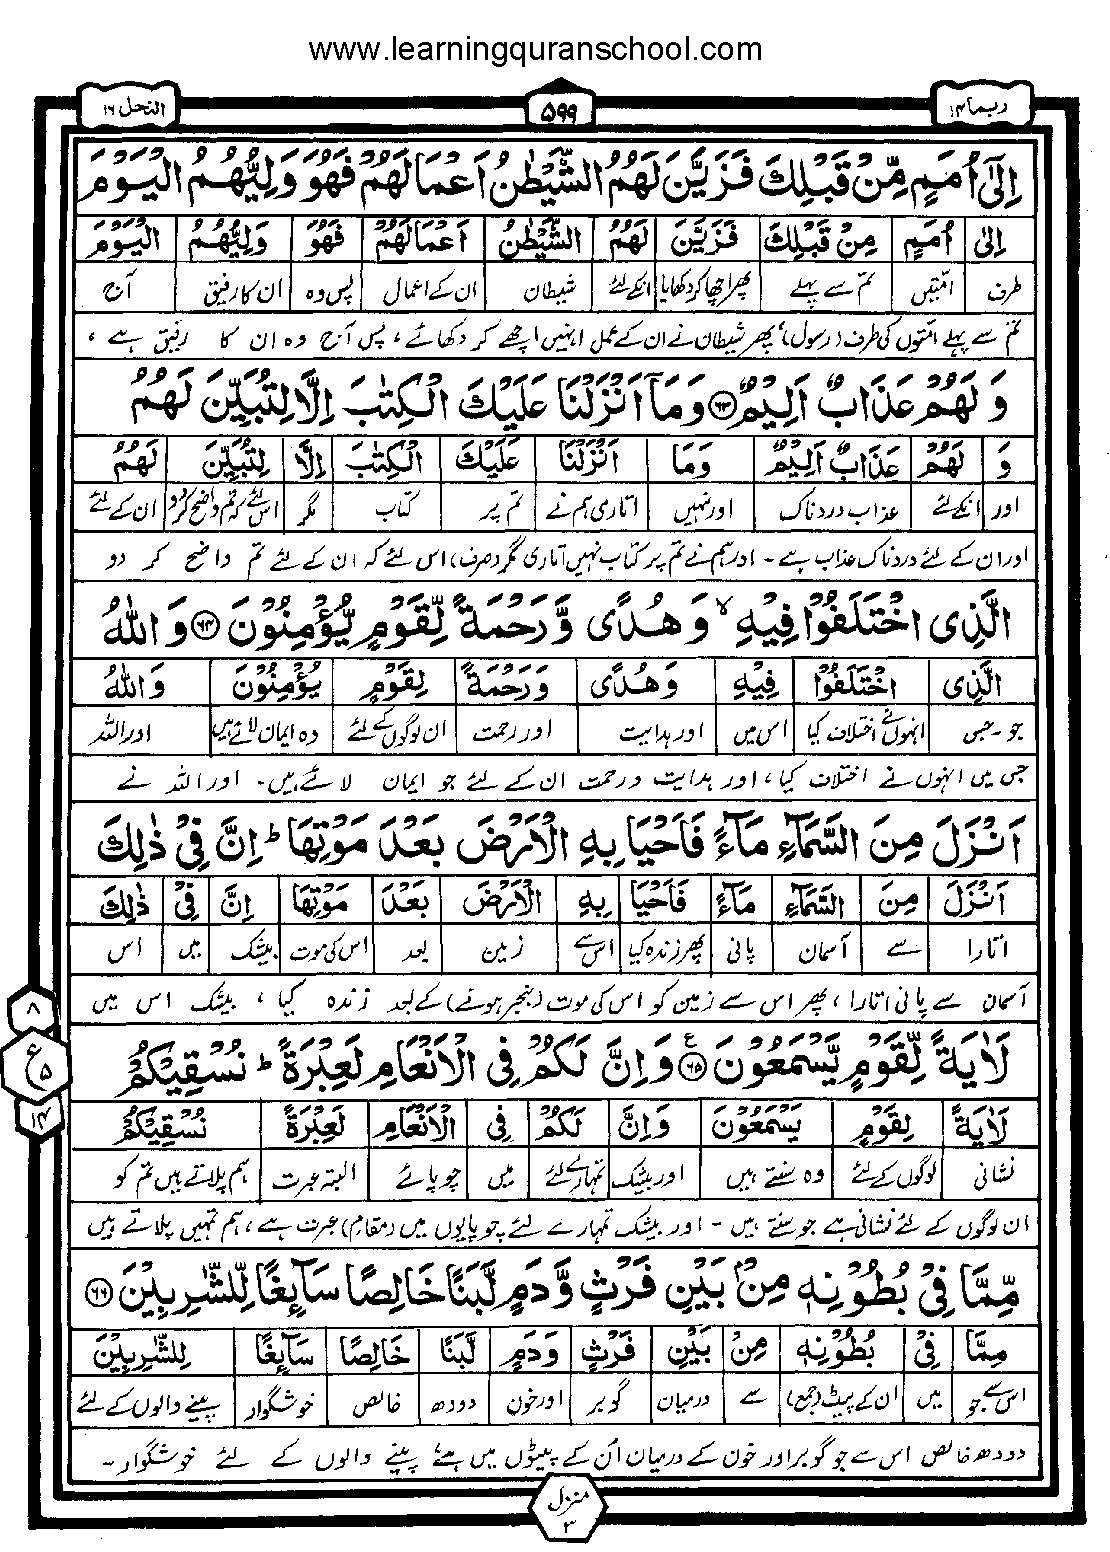 www.learningquranschool.com
ربما ۱۴
۵۹۹
النحل ۱۶
اِلٰۤی اُمَمٍ مِّنْ قَبْلِكَ فَزَیَّنَ لَهُمُ الشَّیْطٰنُ اَعْمَالَهُمْ فَهُوَ وَلِیُّهُمُ الْیَوْمَ
اِلٰی اُمَمٍ مِنْ قَبْلِكَ فَزَیَّنَ لَهُمُ الشَّیْطٰنُ اَعْمَالَهُمْ فَهُوَ وَلِیُّهُمُ الْیَوْمَ
طرف امتیں تم سے پہلے پھر اچھا کر دکھایا انکے لئے شیطان ان کے اعمال پس وہ ان کا رفیق آج
تم سے پہلے امتوں کی طرف (رسول) پھر شیطان نے ان کے عمل انہیں اچھے کر دکھائے، پس آج وہ ان کا رفیق ہے ،
وَ لَهُمْ عَذَابٌ اَلِیْمٌ ۶۳ وَمَاۤ اَنْزَلْنَا عَلَیْكَ الْكِتٰبَ اِلَّا لِتُبَیِّنَ لَهُمُ
وَ لَهُمْ عَذَابٌ اَلِیْمٌ وَمَا اَنْزَلْنَا عَلَیْكَ الْكِتٰبَ اِلَّا لِتُبَیِّنَ لَهُمُ
اور انکے لئے عذاب دردناک اور نہیں اتاری ہم نے تم پر کتاب مگر اس لئے کہ تم واضح کر دو ان کے لئے
اور ان کے لئے دردناک عذاب ہے - اور ہم نے تم پر کتاب نہیں اتاری مگر (صرف) اس لئے کہ ان کے لئے تم واضح کر دو
الَّذِی اخْتَلَفُوْا فِیْهِ ۙ وَ هُدًی وَّ رَحْمَةً لِّقَوْمٍ یُّؤْمِنُوْنَ ۶۴ وَ اللّٰهُ
الَّذِی اخْتَلَفُوْا فِیْهِ وَ هُدًی وَ رَحْمَةً لِقَوْمٍ یُؤْمِنُوْنَ وَ اللّٰهُ
جو - جس انہوں نے اختلاف کیا اس میں اور ہدایت اور رحمت ان لوگوں کے لئے وہ ایمان لائے ہیں اور اللہ
جس میں انہوں نے اختلاف کیا، اور ہدایت و رحمت ان کے لئے جو ایمان لائے ہیں - اور اللہ نے
اَنْزَلَ مِنَ السَّمَآءِ مَآءً فَاَحْیَا بِهِ الْاَرْضَ بَعْدَ مَوْتِهَا ؕ اِنَّ فِیْ ذٰلِكَ
اَنْزَلَ مِنَ السَّمَآءِ مَآءً فَاَحْیَا بِهِ الْاَرْضَ بَعْدَ مَوْتِهَا اِنَّ فِیْ ذٰلِكَ
اتارا سے آسمان پانی پھر زندہ کیا اس سے زمین بعد اس کی موت بیشک میں اس
آسمان سے پانی اتارا، پھر اس سے زمین کو اس کی موت (بنجر ہونے) کے بعد زندہ کیا ، بیشک اس میں
۸
لَاٰیَةً لِّقَوْمٍ یَّسْمَعُوْنَ ۶۵ ع وَ اِنَّ لَكُمْ فِی الْاَنْعَامِ لَعِبْرَةً ؕ نُسْقِیْكُمْ
ع ۵
لَاٰیَةً لِقَوْمٍ یَسْمَعُوْنَ وَ اِنَّ لَكُمْ فِی الْاَنْعَامِ لَعِبْرَةً نُسْقِیْكُمْ
۱۴
نشانی لوگوں کے لئے وہ سنتے ہیں اور بیشک تمہارے لئے میں چوپائے البتہ عبرت ہم پلاتے ہیں تم کو
ان لوگوں کے لئے نشانی ہے جو سنتے ہیں - اور بیشک تمہارے لئے چوپایوں میں (مقام) عبرت ہے، ہم تمہیں پلاتے ہیں
مِّمَّا فِیْ بُطُوْنِهٖ مِنْۢ بَیْنِ فَرْثٍ وَّ دَمٍ لَّبَنًا خَالِصًا سَآىِٕغًا لِّلشّٰرِبِیْنَ ۶۶
مِمَّا فِیْ بُطُوْنِهٖ مِنْ بَیْنِ فَرْثٍ وَ دَمٍ لَبَنًا خَالِصًا سَآىِٕغًا لِلشّٰرِبِیْنَ
اس سے جو میں ان کے پیٹ (جمع) سے درمیان گوبر اور خون دودھ خالص خوشگوار پینے والوں کے لئے
دودھ خالص اس سے جو گوبر اور خون کے درمیان اُن کے پیٹوں میں ہے، پینے والوں کے لئے خوشگوار -
منزل ۳